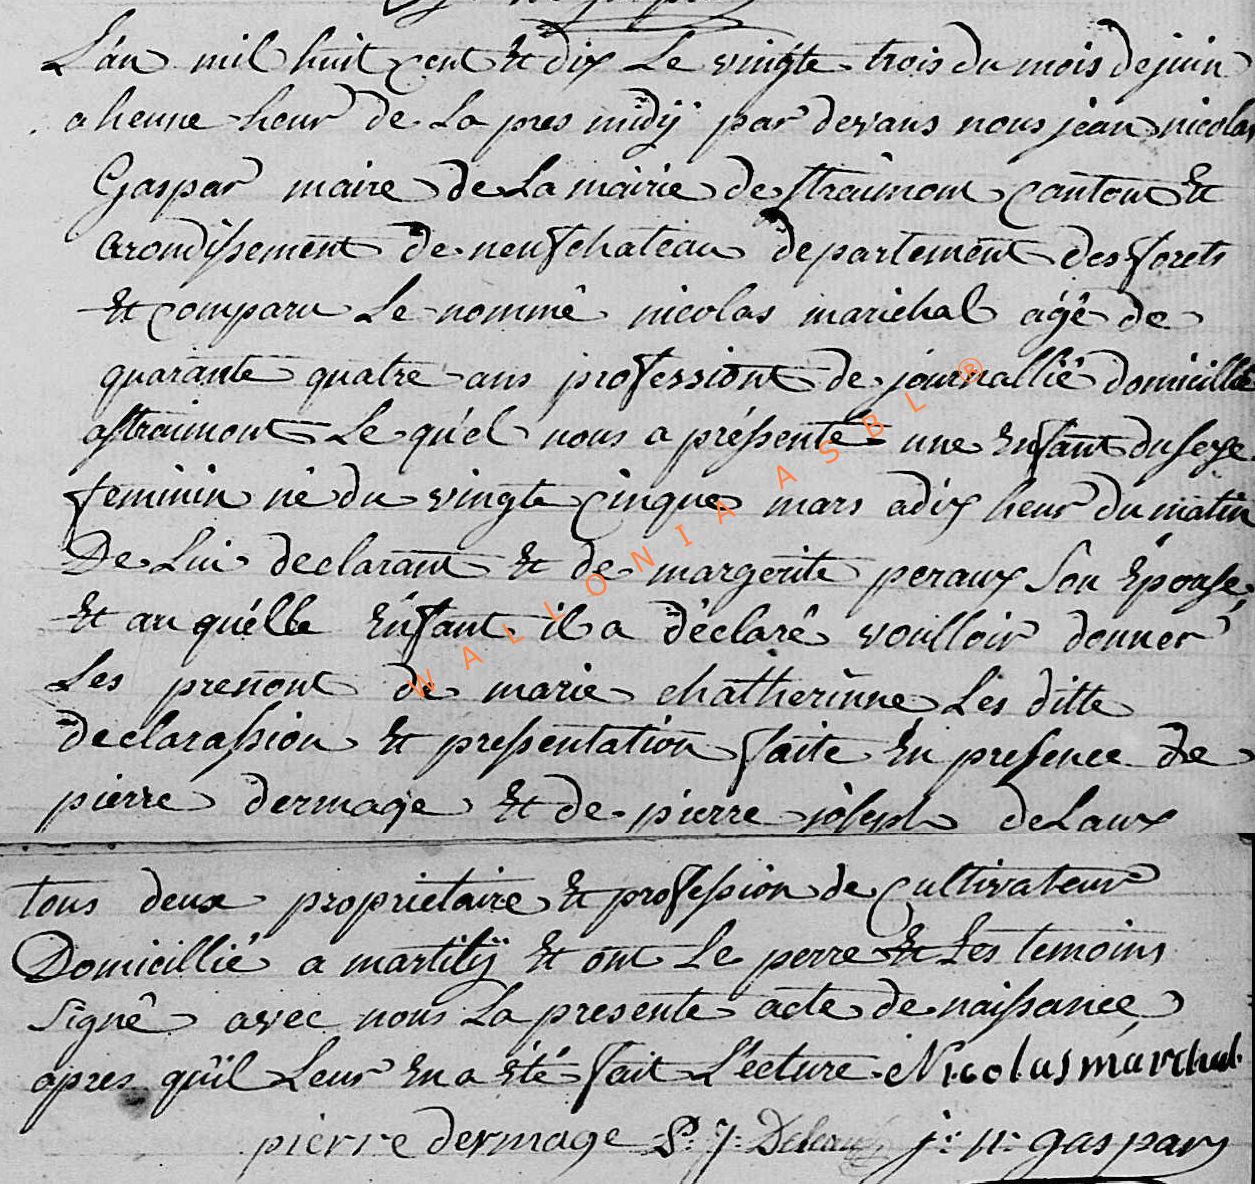 L'an mil huit cent et dix le vingte trois du mois de juin
a heune heur de la pres midÿ par devans nous jean nicolas
Gaspar maire de la mairie de straimont canton et
arondissement de neufchateau departement des forets
et comparu le nommé nicolas marichal agé de
quarante quatre ans professiont de journallié domicillié
a straimont le quel nous a préssenté une enfant du sexe
feminin né du vingte cinque mars a dix heur du matin
De lui declarant et de margerite peraux son épouse
et au quélle énfant il a déclaré voulloir donner
les prenont de marie chatherinne les ditte
declarassion et pressentation faite en presence de
pierre dermage et de pierre joseph delaux
tous deux proprietaire et profession de cultivateur
Domicillié a martilÿ et ont le perre et les temoins
signé avec nous la presente acte de naissance
apres qu'il leur en a été fait lécture Nicolas marchal
pierre dermage P: J: Delaux j: n: gaspar
WALLONIA ASBL ®